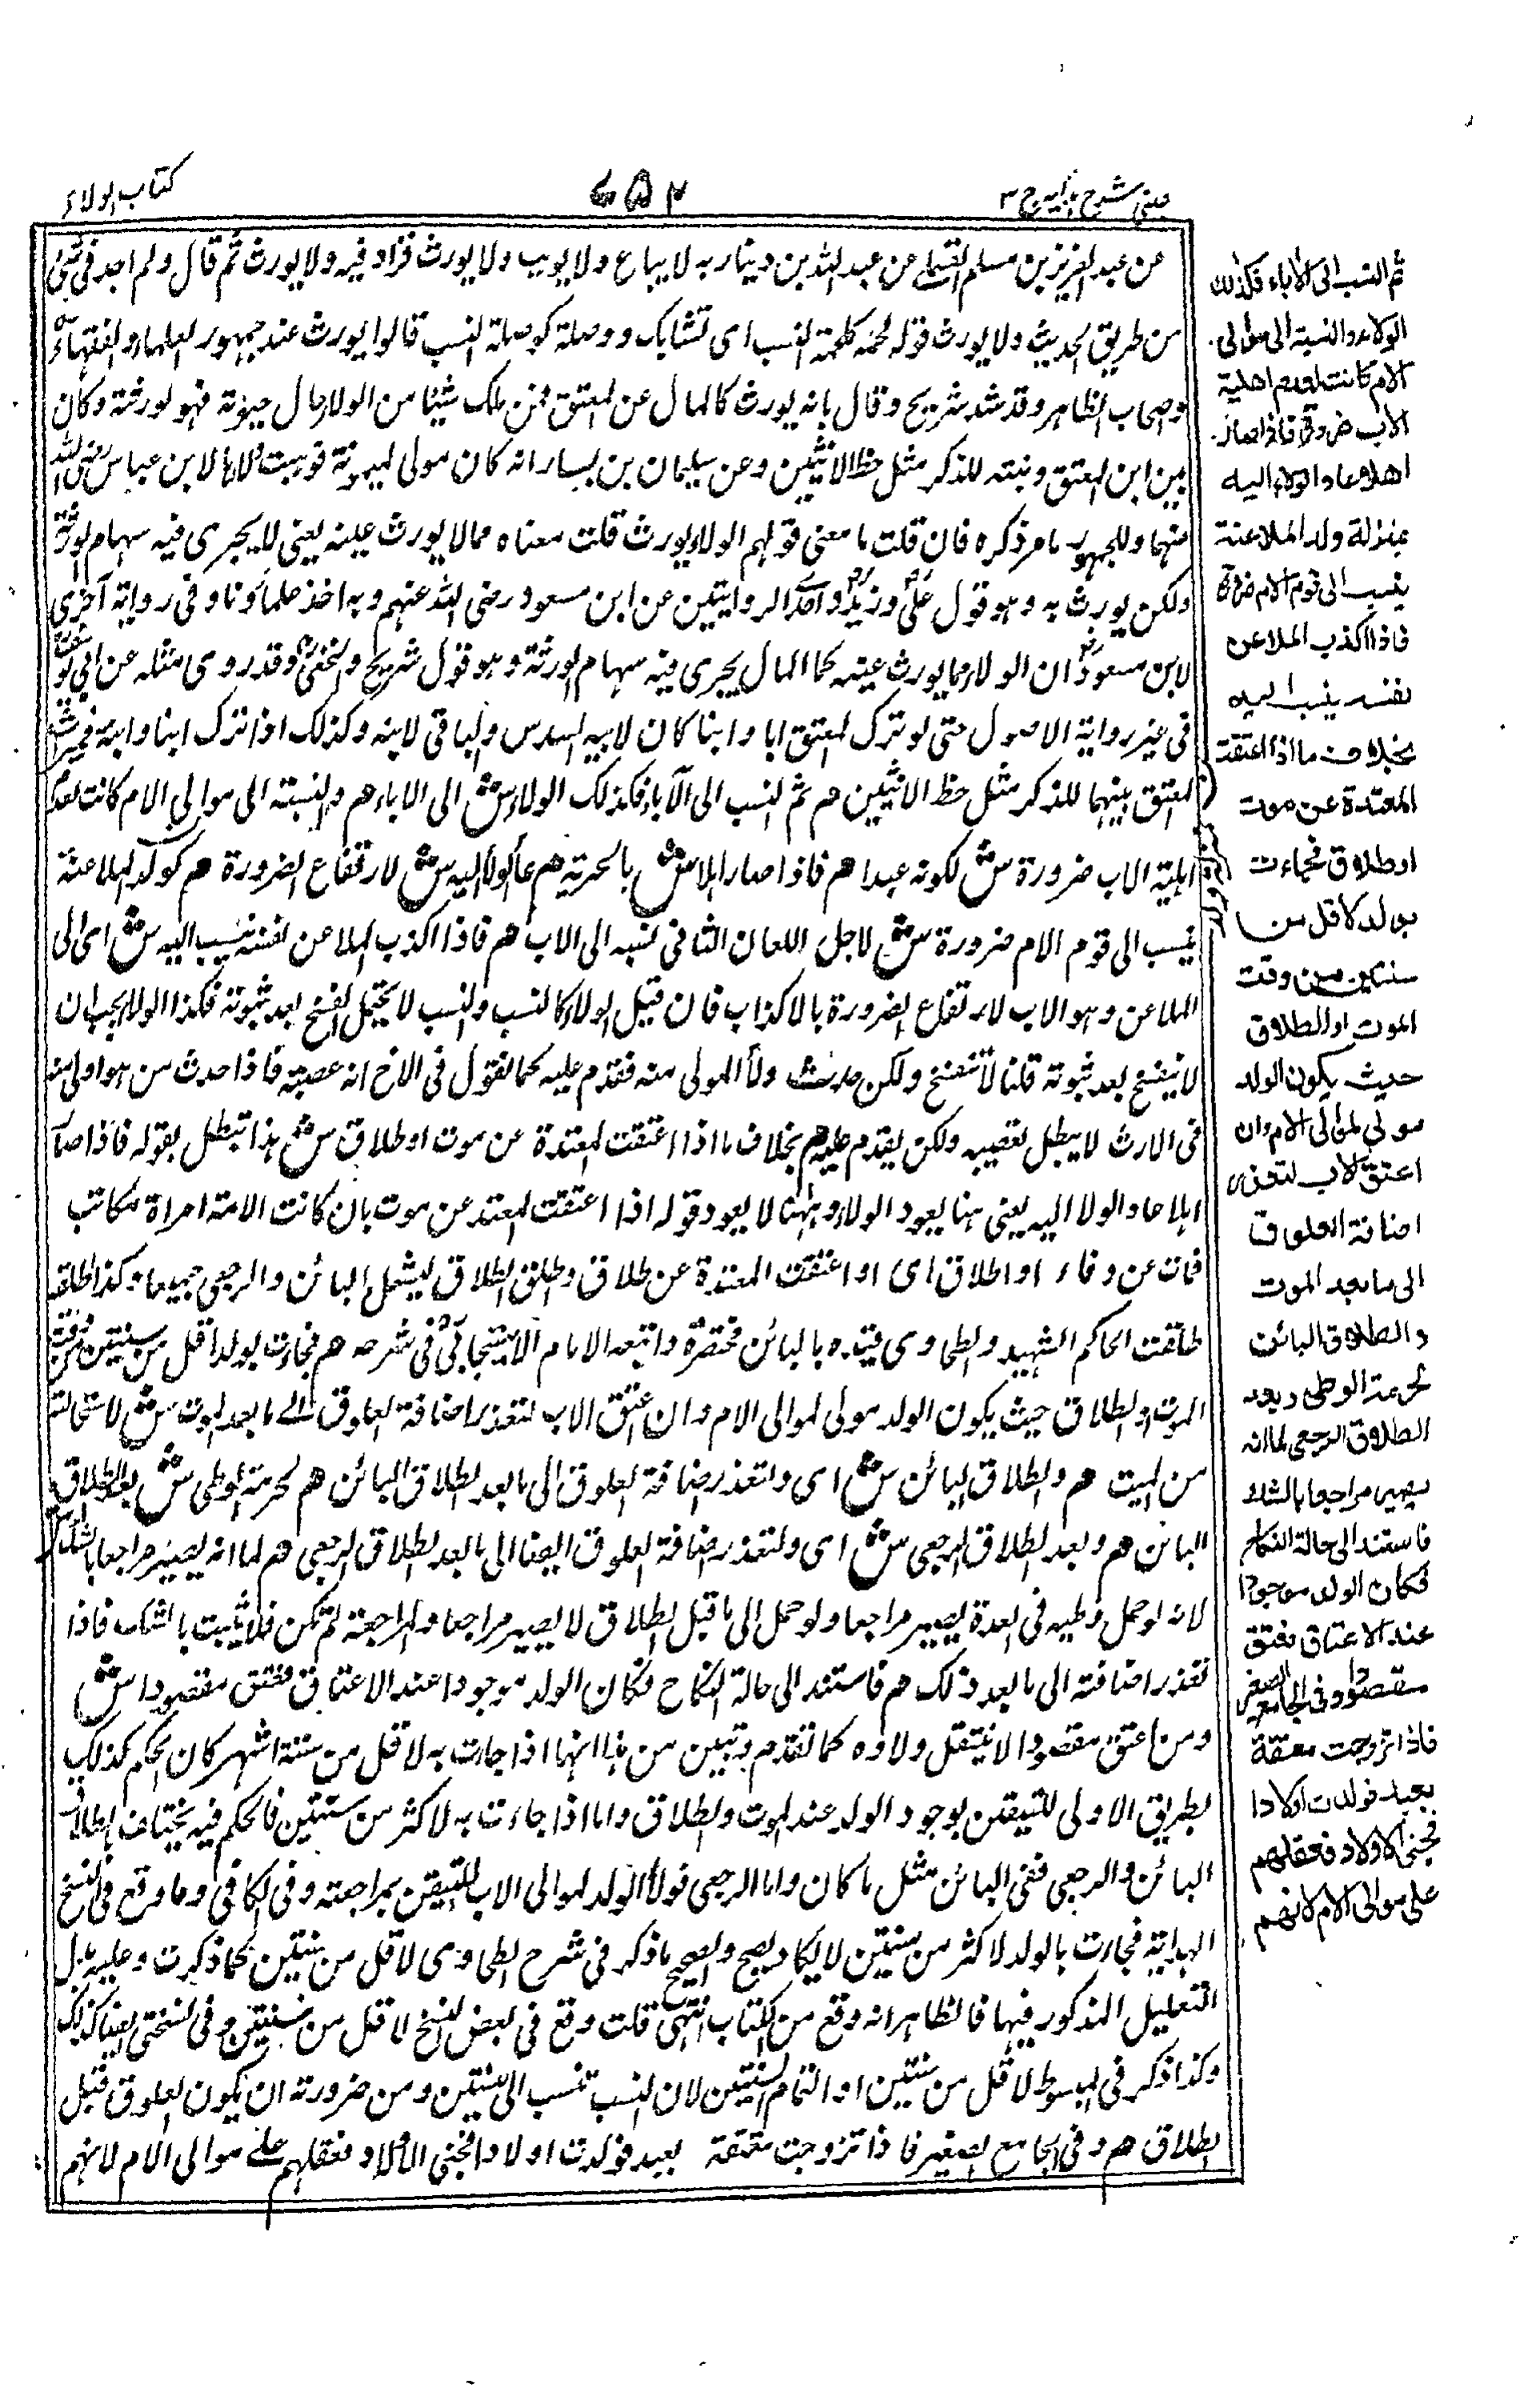 عینی شرح ہدایہ ج ۳
۷۵۲
کتاب الولاء
عن عبد العزیز بن مسلم القسملی عن عبد اللہ بن دینار بہ لا یباع ولا یوہب ولا یورث فزاد فیہ ولا یورث ثم قال ولم اجد فی شئ
من طریق الحدیث ولا یورث قولہ لحمۃ کلحمۃ النسب ای تشابک ووصلۃ کوصلۃ النسب قالوا یورث عند جمہور العلماء والفقہاء
واصحاب الظاہر وقد شذ شریح وقال بانہ یورث کالمال عن المعتق فمن ملک شیئا من الولاء حال حیوتہ فہو لورثتہ وکان
بین ابن المعتق وبنتہ للذکر مثل حظ الانثیین وعن سلیمان بن یسار انہ کان مولی لمیمونۃ فوہبت ولاءہا لابن عباس رضی اللہ
عنہما وللجمہور ما مر ذکرہ فان قلت ما معنی قولہم الولاء یورث قلت معناہ مما لا یورث عینہ یعنی لا یجری فیہ سہام الورثۃ
ولکن یورث بہ وہو قول علی وزید واحد الروایتین عن ابن مسعود رضی اللہ عنہم وبہ اخذ علماؤنا وفی روایۃ اخری
لابن مسعود ان الولاء مما یورث عینہ کما المال یجری فیہ سہام الورثۃ وہو قول شریح والنخعی وقد روی مثلہ عن ابی یوسف
فی غیر روایۃ الاصول حتی لو ترک المعتق ابا وابنا کان لابیہ السدس والباقی لابنہ وکذلک اذا ترک ابنا وابنۃ فمیراث
المعتق بینہما للذکر مثل حظ الانثیین ہم ثم النسب الی الآباء فکذلک الولاء ش الی الاباء ہم والنسبۃ الی موالی الام کانت لعدم
اہلیۃ الاب ضرورۃ ش لکونہ عبدا ہم فاذا صار اہلا ش بالحریۃ ہم عاد الولاء الیہ ش لارتفاع الضرورۃ ہم کولد الملاعنۃ
ینسب الی قوم الام ضرورۃ ش لاجل اللعان الثافی نسبہ الی الاب ہم فاذا اکذب الملاعن نفسہ ینسب الیہ ش ای الی
الملاعن وہو الاب لارتفاع الضرورۃ بالاکذاب فان قیل الولاء کالنسب والنسب لا یحتمل الفسخ بعد ثبوتہ فکذا الولاء یجب ان
لا ینفسخ بعد ثبوتہ قلنا لا تنفسخ ولکن حدث ولاء المولی منہ فقدم علیہ کما نقول فی الاخ انہ عصبۃ فاذا حدث من ہو اولی منہ
فی الارث لا یبطل تعصیبہ ولکن یقدم علیہ ہم بخلاف ما اذا اعتقت المعتدۃ عن موت او طلاق ش ہذا تبطل بقولہ فاذا صار
اہلا عاد الولاء الیہ یعنی ہنا یعود الولاء وہہنا لا یعود قولہ اذا اعتقت المعتدۃ عن موت بان کانت الامۃ امراۃ مکاتب
فمات عن وفاء او اطلاق ای او اعتقت المعتدۃ عن طلاق واطلق الطلاق لیشمل البائن والرجعی جمیعا وکذا اطلقہ
الحاکم الشہید والطحاوی قیدہ بالبائن مختصرہ واتبعہ الامام الاسبیجابی فی شرحہ ہم فجاءت بولد اقل من سنتین من وقت
الموت او الطلاق حیث یکون الولد مولی لموالی الام وان عتق الاب لتعذر اضافۃ العلوق الی ما بعد الموت ش
من المیت ہم والطلاق البائن ش ای ولتعذر اضافۃ العلوق الی ما بعد الطلاق البائن ہم لحرمۃ الوطی ش بعد الطلاق
البائن ہم وبعد الطلاق الرجعی ش ای ولتعذر اضافۃ العلوق ایضا الی ما بعد الطلاق الرجعی ہم لما انہ یصیر مراجعا بالشک ش
لانہ لو حمل وطیہ فی العدۃ یصیر مراجعا ولو حمل الی ما قبل الطلاق لا یصیر مراجعا والمراجعۃ لم تکن فلا یثبت بالشک فاذا
تعذر اضافتہ الی ما بعد ذلک ہم فاستند الی حالۃ النکاح فکان الولد موجودا عند الاعتاق فعتق مقصودا ش
ومن اعتق مقصودا لا ینتقل ولاؤہ کما تقدم وتبین من ہذا انہا اذا جاءت بہ لاقل من ستۃ اشہر کان الحکم کذلک
بطریق الاولی للتیقن بوجود الولد عند الموت والطلاق واما اذا جاءت بہ لاکثر من سنتین فالحکم فیہ یختلف بالطلاق
البائن والرجعی ففی البائن مثل ما کان واما الرجعی فولاء الولد لموالی الاب للتیقن بمراجعتہ وفی الکافی وما وقع فی النسخ
الہدایۃ فجاءت بالولد لاکثر من سنتین لا یکاد یصح والصحیح ما ذکر فی شرح الطحاوی لاقل من سنتین کما ذکرت وعلیہ یدل
التعلیل المذکور فیہا فالظاہر انہ وقع من الکتاب انتہی قلت وقع فی بعض النسخ لاقل من سنتین وفی نسختی ایضا کذلک
وکذا ذکر فی المبسوط لاقل من سنتین او التمام السنتین لان النسب تنسب الی سنتین ومن ضرورتہ ان یکون العلوق قبل
الطلاق ہم وفی الجامع الصغیر فاذا تزوجت معتقۃ بعبد فولدت اولادا فجنی الاولاد فعقلہم علی موالی الام لانہم
ثم النسب الی الاباء فکذلک
الولاء والنسبۃ الی موالی
الام کانت لعدم اھلیۃ
الاب ضرورۃ فاذا صار
اھلا عاد الولاء الیہ
بمنزلۃ ولد الملاعنۃ
ینسب الی قوم الام ضرورۃ
فاذا اکذب الملاعن
نفسہ ینسب الیہ
بخلاف ما اذا اعتقت
المعتدۃ عن موت
او طلاق فجاءت
بولد لاقل من
سنتین من وقت
الموت او الطلاق
حیث یکون الولد
مولی لموالی الام وان
اعتق الاب لتعذر
اضافۃ العلوق
الی ما بعد الموت
والطلاق البائن
لحرمۃ الوطی وبعد
الطلاق الرجعی لما انہ
یصیر مراجعا بالشک
فاستند الی حالۃ النکاح
فکان الولد موجودا
عند الاعتاق فعتق
مقصودا وفی الجامع الصغیر
فاذا تزوجت معتقۃ
بعبد فولدت اولادا
فجنی الاولاد فعقلھم
علی موالی الام لانھم